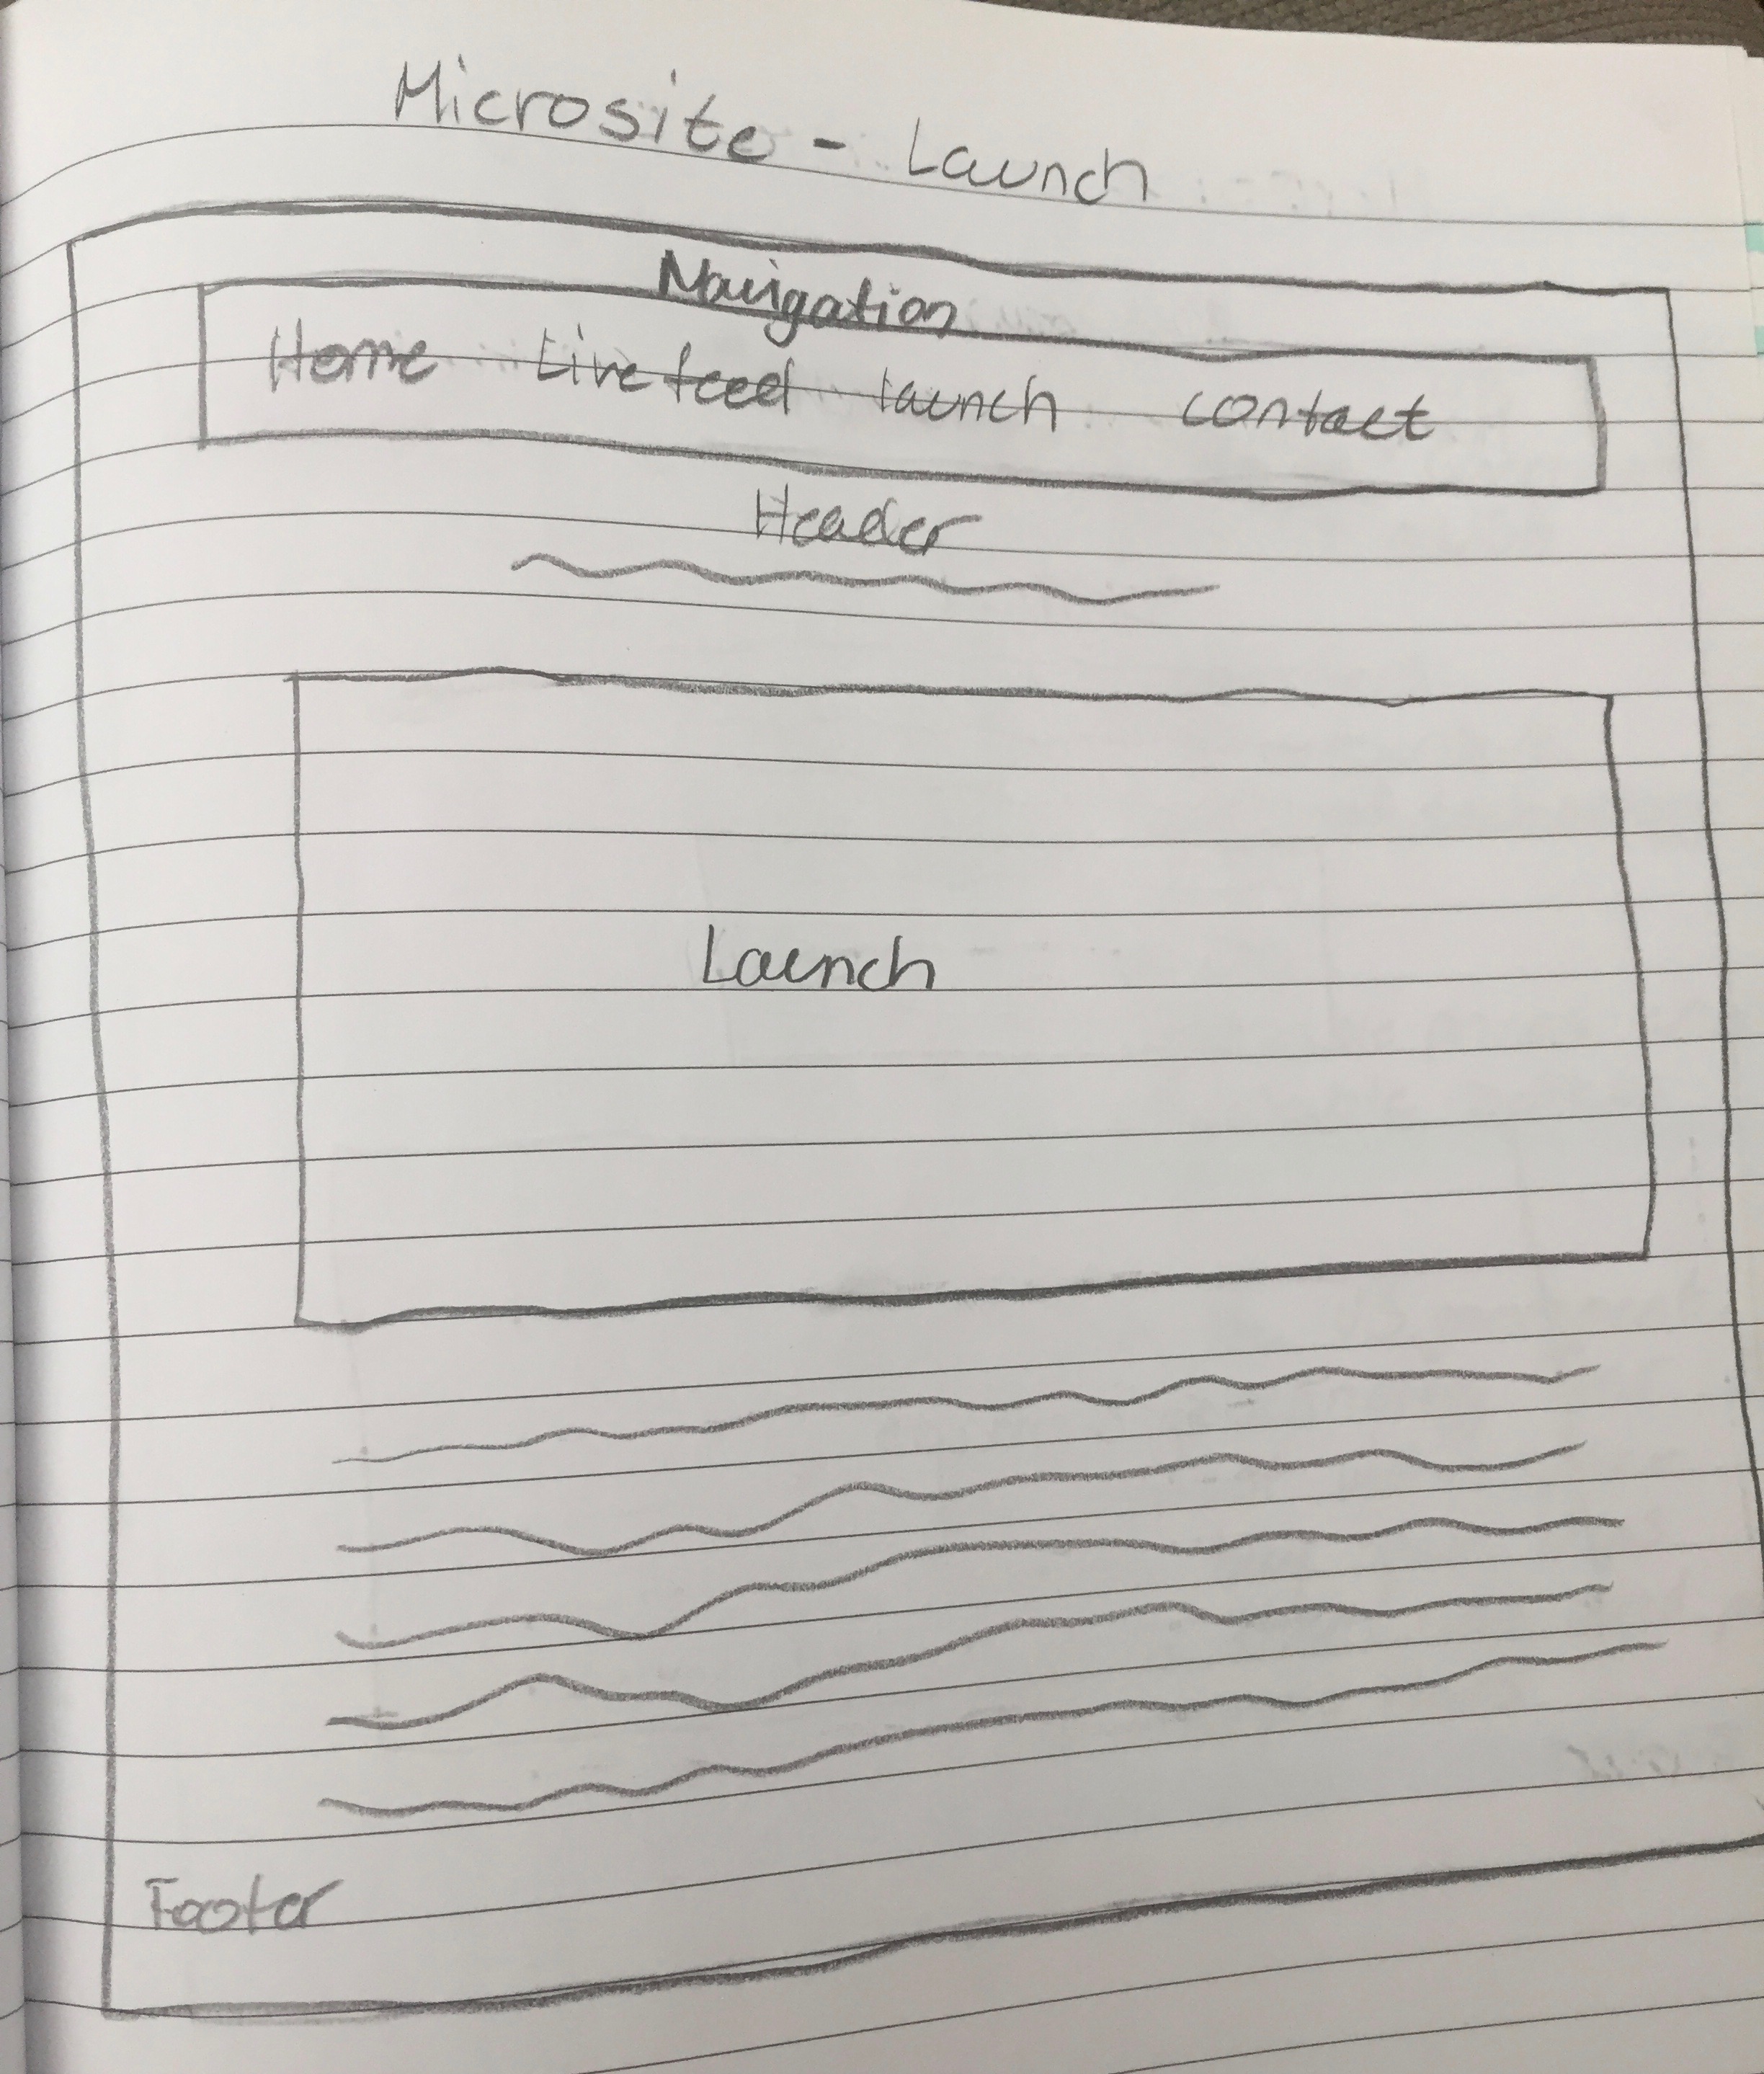 Microsite - Launch
Navigation
Home Live feed launch contact
Header
Launch
Footer